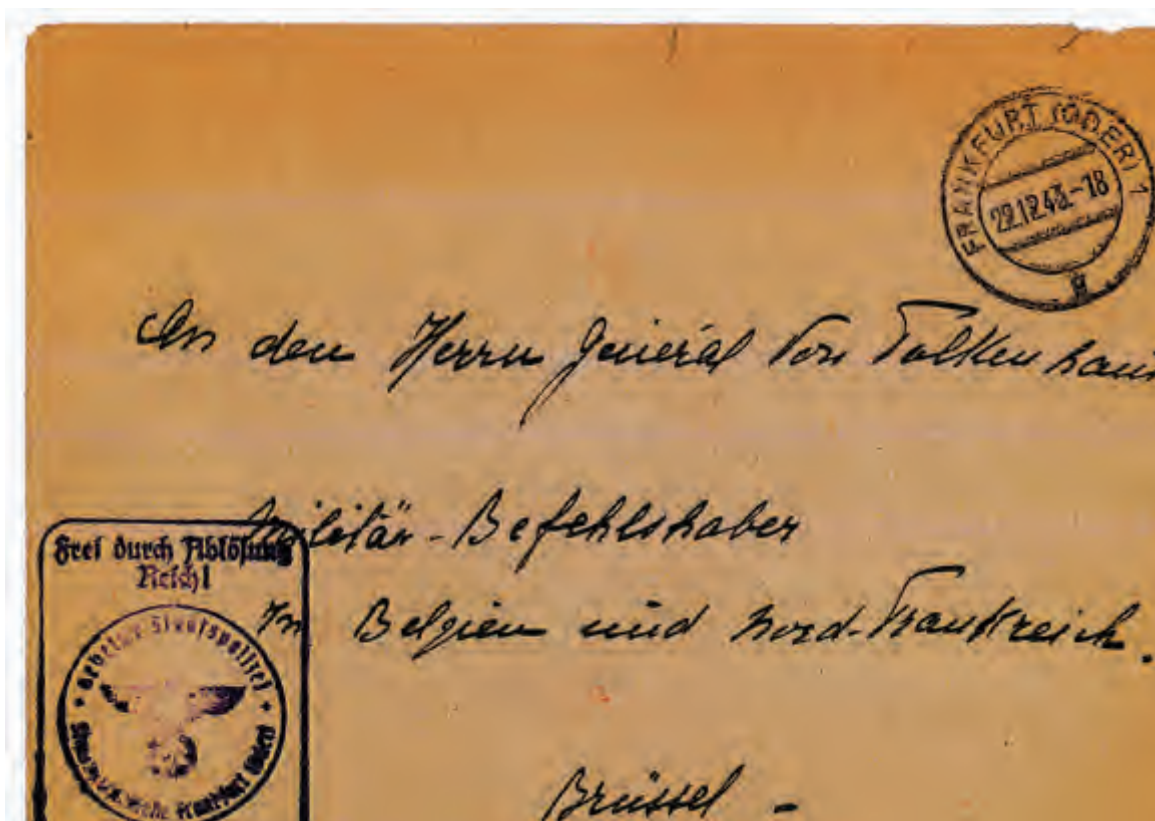 FRANKFURT (ODER) 1
22.12.43.-18
An den Herrn General Von Falkenhau
Militär-Befehlshaber
In Belgien und Nord-Frankreich.
Brüssel -
Frei durch Ablösung
Reich
Geheime Staatspolizei
Frankfurt (Oder)